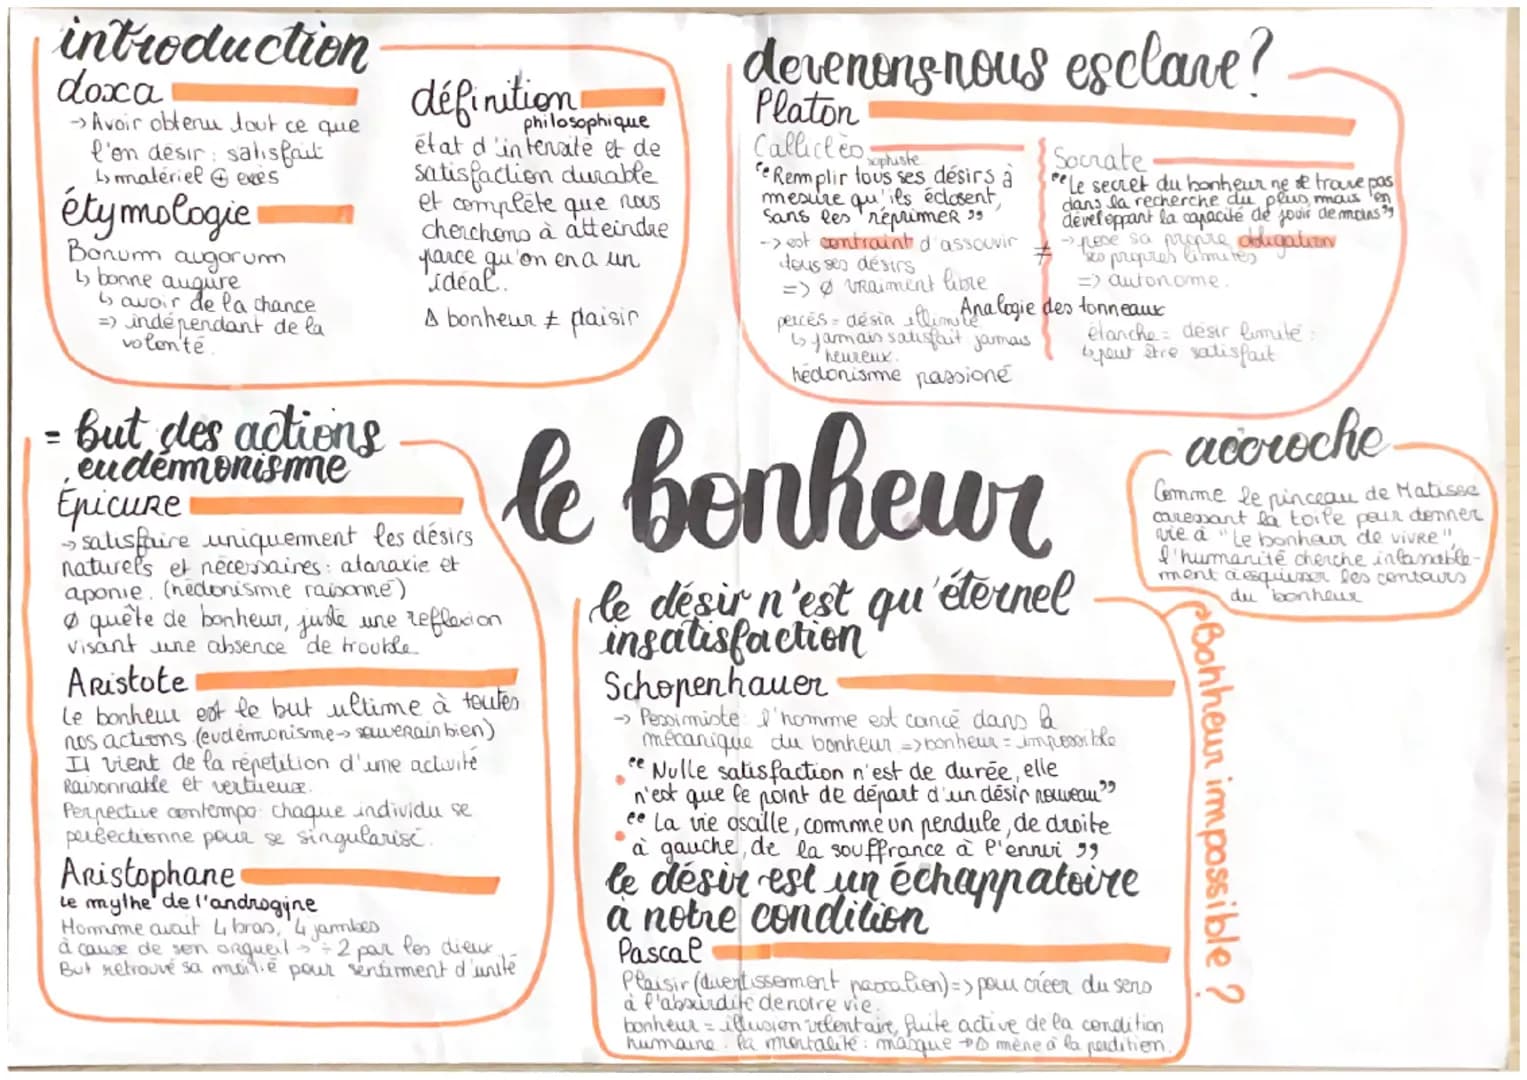 introduction
doxa
→ Avoir obtenu tout ce que
l'on désir : satisfait
↳ matériel ⊕ excès
étymologie
Bonum augorum
↳ bonne augure
↳ avoir de la chance
=> indépendant de la
volonté.
définition
philosophique
état d'intensité et de
satisfaction durable
et complète que nous
cherchons à atteindre
parce qu'on en a un
idéal.
Δ bonheur ≠ plaisir
devenons-nous esclave?
Platon
Calliclès sophiste
"Remplir tous ses désirs à
mesure qu'ils éclosent,
sans les réprimer"
-> est contraint d'assouvir
tous ses désirs
=> Ø vraiment libre
≠
Socrate
"Le secret du bonheur ne se trouve pas
dans la recherche du plus, mais en
développant la capacité de jouir de moins"
→ pose sa propre obligation
ses propres limites
=> autonome.
Analogie des tonneaux
percés = désir illimité
↳ jamais satisfait jamais
heureux.
hédonisme passioné
étanche = désir limité :
↳ peut être satisfait
= But des actions
eudémonisme
Épicure
→ satisfaire uniquement les désirs
naturels et nécessaires : ataraxie et
aponie. (hédonisme raisonné)
Ø quête de bonheur, juste une reflexion
visant une absence de trouble
Aristote
Le bonheur est le but ultime à toutes
nos actions (eudémonisme → souverain bien)
Il vient de la répetition d'une activité
Raisonnable et vertueux.
Perpective contempo: chaque individu se
perfectionne pour se singularisé.
Aristophane
Le mythe de l'androgine
Homme avait 4 bras, 4 jambes
à cause de son orgueil → ÷ 2 par les dieux
But retrouvé sa moitié pour sentiment d'unité
le bonheur
accroche
Comme le pinceau de Matisse
caressant la toile pour donner
vie à "Le bonheur de vivre",
l'humanité cherche inlassable-
ment à esquisser les contours
du bonheur
le désir n'est qu'éternel
insatisfaction
Schopenhauer
→ Pessimiste : l'homme est cancé dans la
mécanique du bonheur => bonheur = impossible
"Nulle satisfaction n'est de durée, elle
n'est que le point de départ d'un désir nouveau"
"La vie oscille, comme un pendule, de droite
à gauche, de la souffrance à l'ennui"
le désir est un échappatoire
à notre condition
Pascal
Plaisir (divertissement pascalien) => pour créer du sens
à l'absurdité de notre vie.
bonheur = illusion volontaire, fuite active de la condition
humaine. la mortalité : masque → Δ mène à la perdition.
→ Bonheur impossible ?